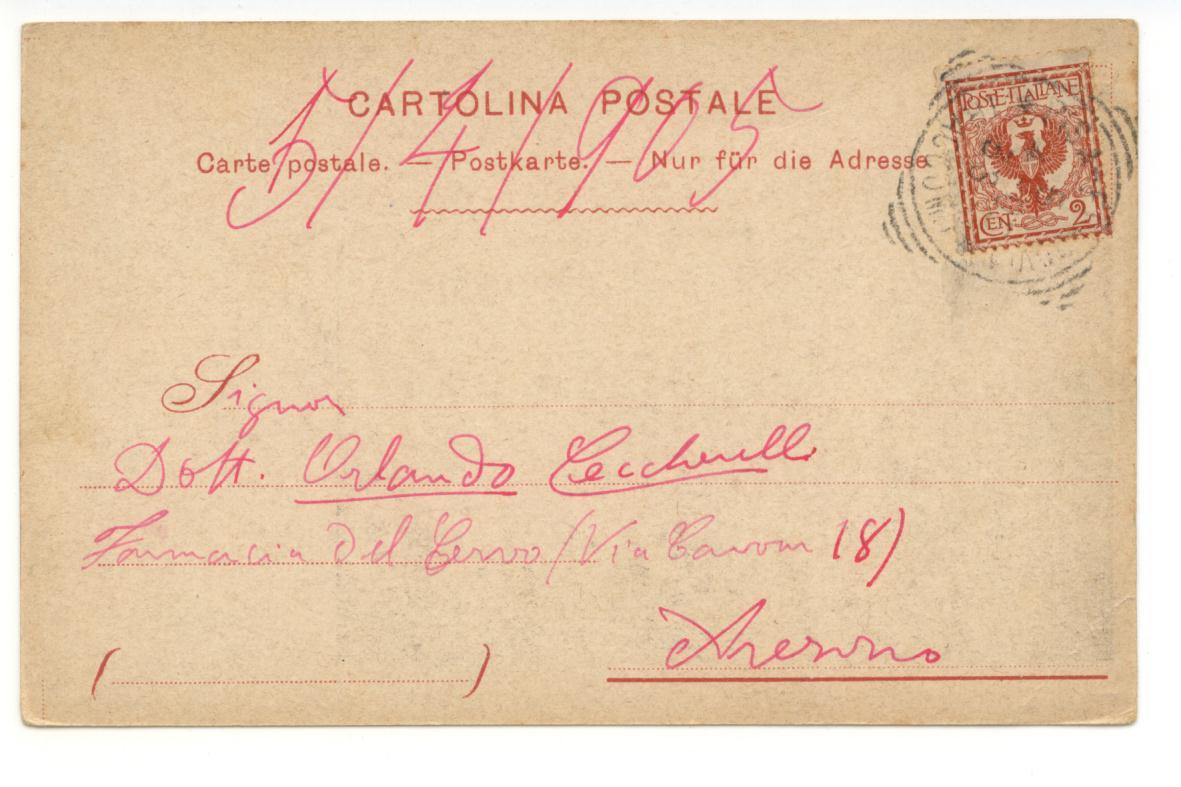 5/4/905
CARTOLINA POSTALE
Carte postale. — Postkarte. — Nur für die Adresse
POSTE·ITALIANE
CEN. 2
Signor
Dott. Orlando Ceccherelli
Farmacia del Cervo (Via Cavour 18)